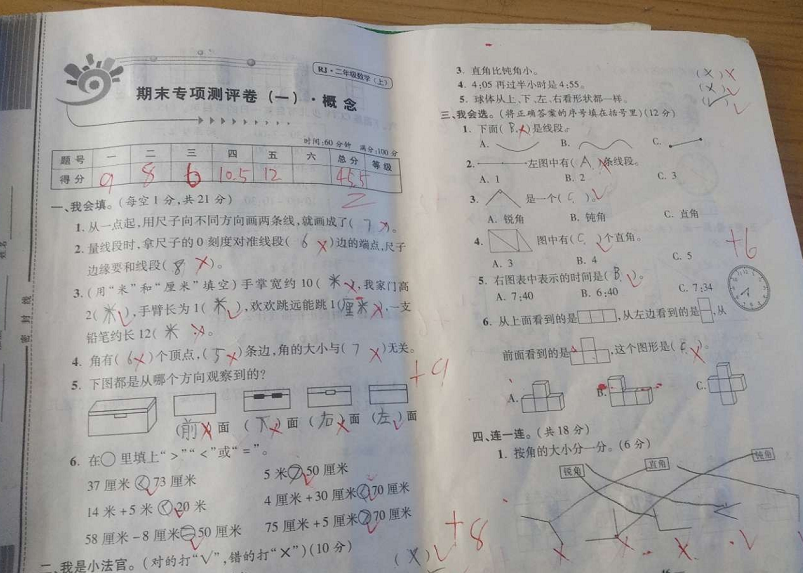 RJ·二年级数学(上)
期末专项测评卷(一)·概念
时间:60分钟 满分:100分
题号 一 二 三 四 五 六 总分 等级
得分 9 8 6 10.5 12 45.5
一、我会填。(每空1分,共21分)
1. 从一点起,用尺子向不同方向画两条线,就画成了( 7 )。
2. 量线段时,拿尺子的0刻度对准线段( 6 )边的端点,尺子
边缘要和线段( 8 )。
3. (用“米”和“厘米”填空)手掌宽约10( 米 ),我家门高
2( 米 ),手臂长为1( 米 ),欢欢跳远能跳1(厘米),一支
铅笔约长12( 米 )。
4. 角有( 6 )个顶点,( 5 )条边,角的大小与( 7 )无关。
5. 下图都是从哪个方向观察到的?
(前)面 (下)面 (右)面 (左)面
6. 在○里填上“>”“<”或“=”。
37厘米 < 73厘米 5米 50厘米
14米+5米 20米 4厘米+30厘米 70厘米
58厘米-8厘米 = 50厘米 75厘米+5厘米 70厘米
二、我是小法官。(对的打“√”,错的打“×”)(10分)
(×)
+9
+8
3. 直角比钝角小。 (×)
4. 4:05再过半小时是4:55。 (×)
5. 球体从上、下、左、右看形状都一样。 (√)
三、我会选。(将正确答案的序号填在括号里)(12分)
1. 下面( B )是线段。
A. B. C.
2. 左图中有( A )条线段。
A. 1 B. 2 C. 3
3. 是一个( C )。
A. 锐角 B. 钝角 C. 直角
4. 图中有( C )个直角。
A. 3 B. 4 C. 5
+6
5. 右图表中表示的时间是( B )。
A. 7:40 B. 6:40 C. 7:34
6. 从上面看到的是 ,从左边看到的是 ,从
前面看到的是 ,这个图形是( )。
A. B. C.
四、连一连。(共18分)
1. 按角的大小分一分。(6分)
锐角 直角 钝角